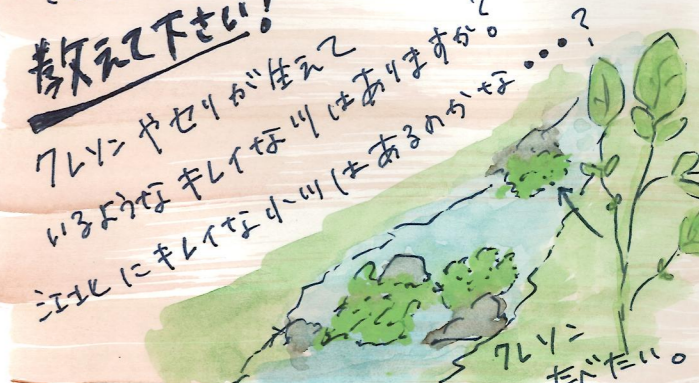 教えて下さい!
クレソンやセリが生えて
いるようなキレイな川はありますか?
江北にキレイな小川はあるのかな・・・・?
クレソン
たべたい。